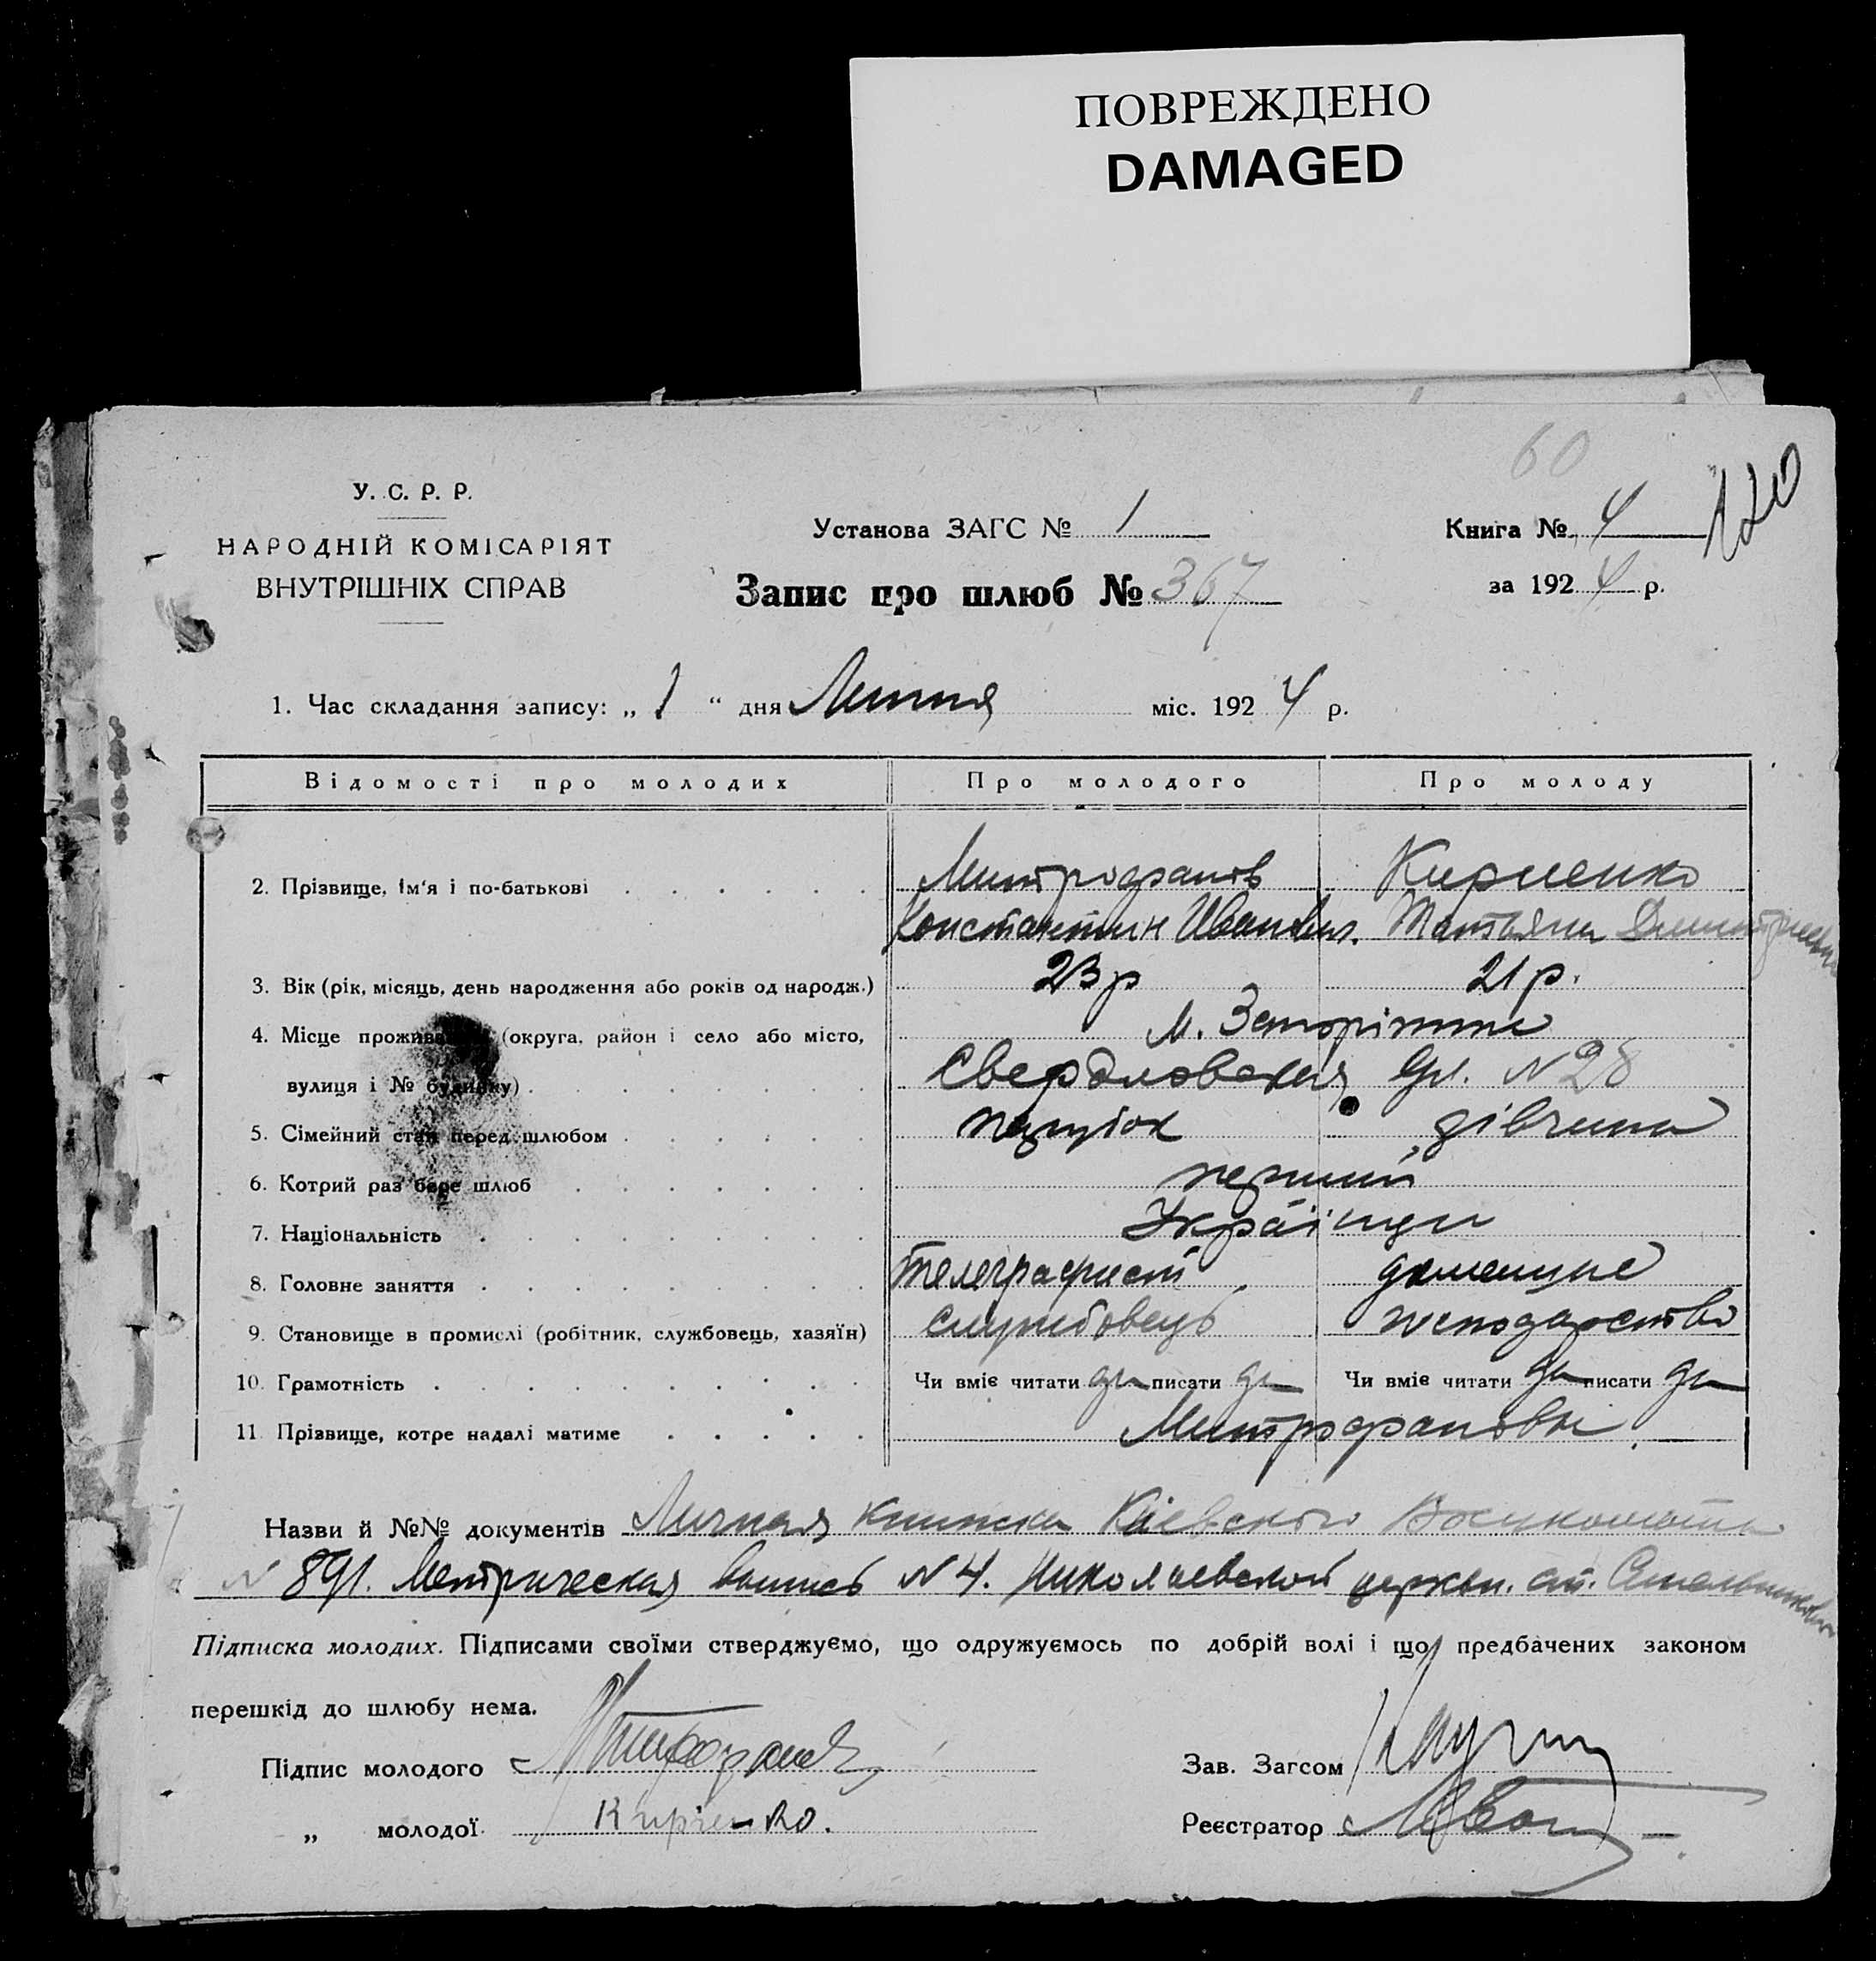 ПОВРЕЖДЕНО
DAMAGED
60
120
У. С. Р. Р.
НАРОДНІЙ КОМІСАРІЯТ
ВНУТРІШНІХ СПРАВ
Установа ЗАГС № 1
Книга № 4
Запис про шлюб № 367
за 1924 р.
1. Час складання запису: „ 1 “ дня Липня міс. 1924 р.
Відомості про молодих Про молодого Про молоду
2. Прізвище, ім'я і по-батькові Митрофанов Кириенко
Константин Иванович. Татьяна Дмитриевна
3. Вік (рік, місяць, день народження або років од народж.) 23 р 21 р.
4. Місце проживання (округа, район і село або місто, м. Запоріжжє
вулиця і № будинку) Свердловская ул. № 28
5. Сімейний стан перед шлюбом парубок дівчина
6. Котрий раз бере шлюб перший
7. Національність Українці
8. Головне заняття телеграфист домашнє
9. Становище в промислі (робітник, службовець, хазяїн) службовець господарство
10. Грамотність Чи вміє читати да писати да Чи вміє читати да писати да
11. Прізвище, котре надалі матиме Митрофановы
Назви й №№ документів Личная книжка Кіевского Военкомата
№ 891. Метрическая выпись № 4. Николаевской церкви. ст.
Підписка молодих. Підписами своїми стверджуємо, що одружуємось по добрій волі і що предбачених законом
перешкід до шлюбу нема.
Підпис молодого Митрофанов
Зав. Загсом
„ молодої Киріенко.
Реєстратор